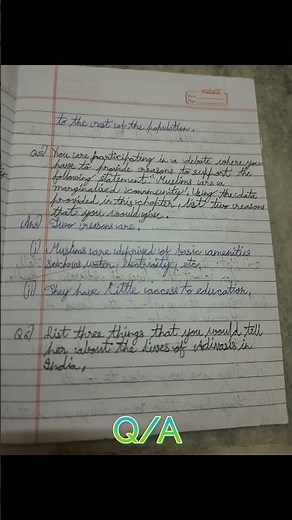 to the rest of the population.
Q5) You are participating in a debate where you
have to provide reasons to support the
following statement: "Muslims are a
marginalised community". Using the data
provided in this chapter, list two reasons
that you would give.
Ans) Two reasons are,
(i) Muslims are deprived of basic amenities
such as water, electricity, etc.
(ii) They have little access to education.
Q6) List three things that you would tell
her about the lives of Adivasis in
India,
Q/A